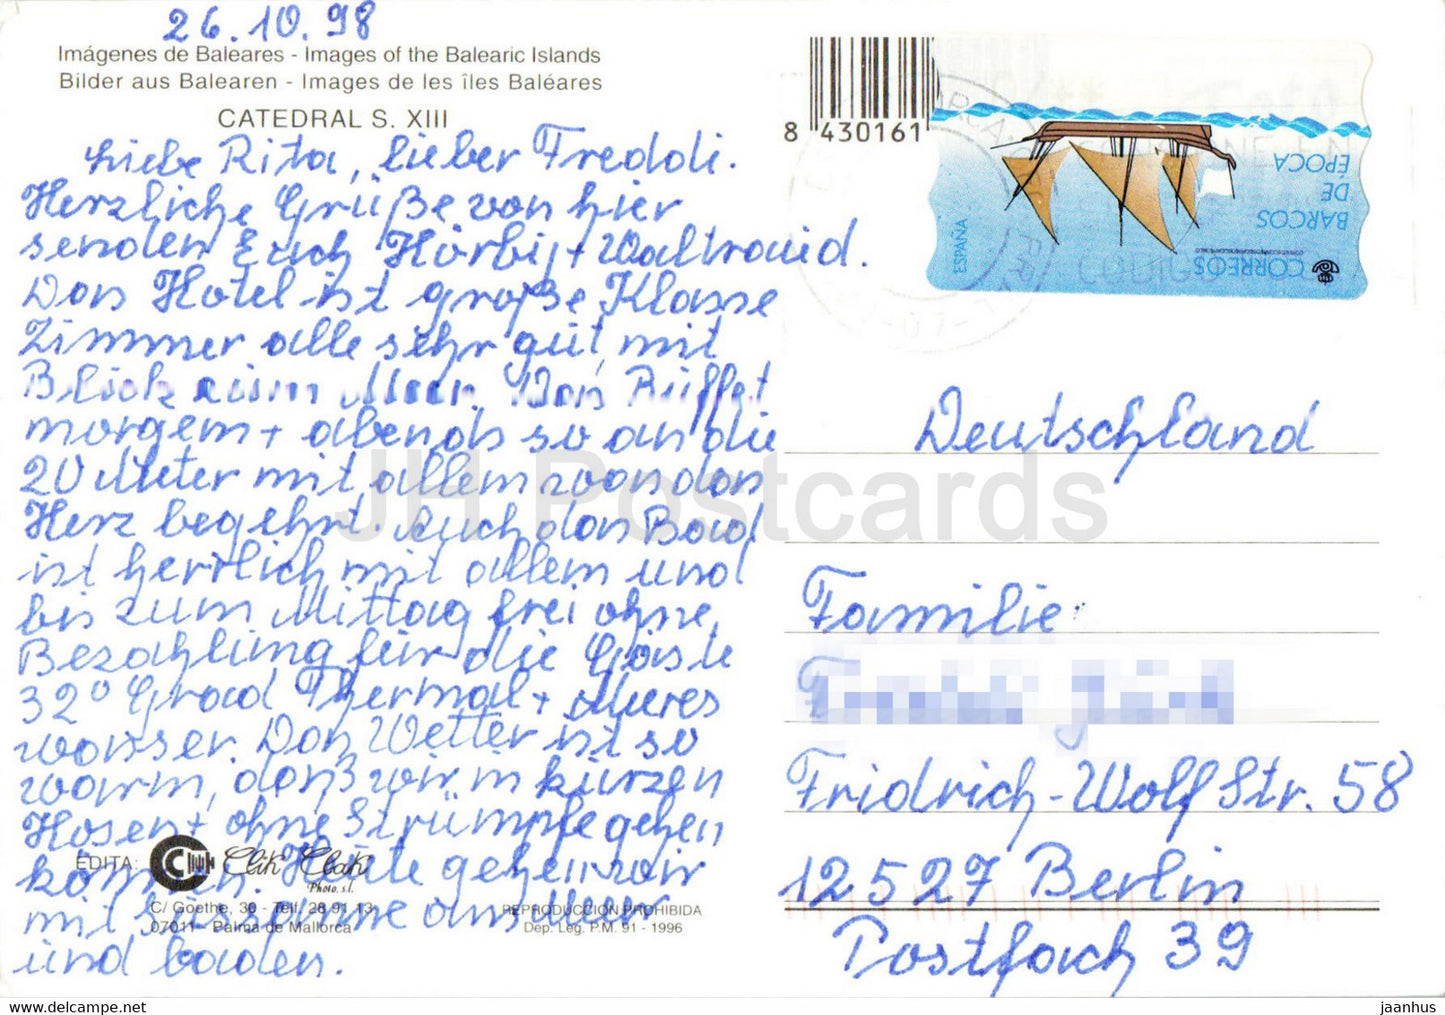 26.10.98
Imágenes de Baleares - Images of the Balearic Islands
Bilder aus Balearen - Images de les îles Baléares
CATEDRAL S. XIII
Liebe Rita, lieber Freddi.
Herzliche Grüße von hier
senden Euch + Waltraud.
Das Hotel ist große Klasse
Zimmer alle sehr gut, mit
Blick zum Meer. Das Büffet
morgem + abends so an die
20 Meter mit allem was das
Herz begehrt. Auch das Bad
ist herrlich mit allem und
bis zum Mittag frei ohne
Bezahlung für die Gäste
32° Grad Thermal + Meres
wasser. Das Wetter ist so
warm, daß wir in kurzen
Hosen + ohne Strümpfe gehen
können. Heute gehen wir
mit ans Meer
und baden.
EDITA:
Clik Clak
Photo, s.l.
C/ Goethe, 30 - Telf. 28 91 13
07011 - Palma de Mallorca
REPRODUCCION PROHIBIDA
Dep. Leg. P.M. 91 - 1996
8 430161
CORREOS
BARCOS
DE
ÉPOCA
ESPAÑA
Deutschland
Familie
Fridrich-Wolf Str. 58
12527 Berlin
Postfach 39
JH Postcards
jaanhus